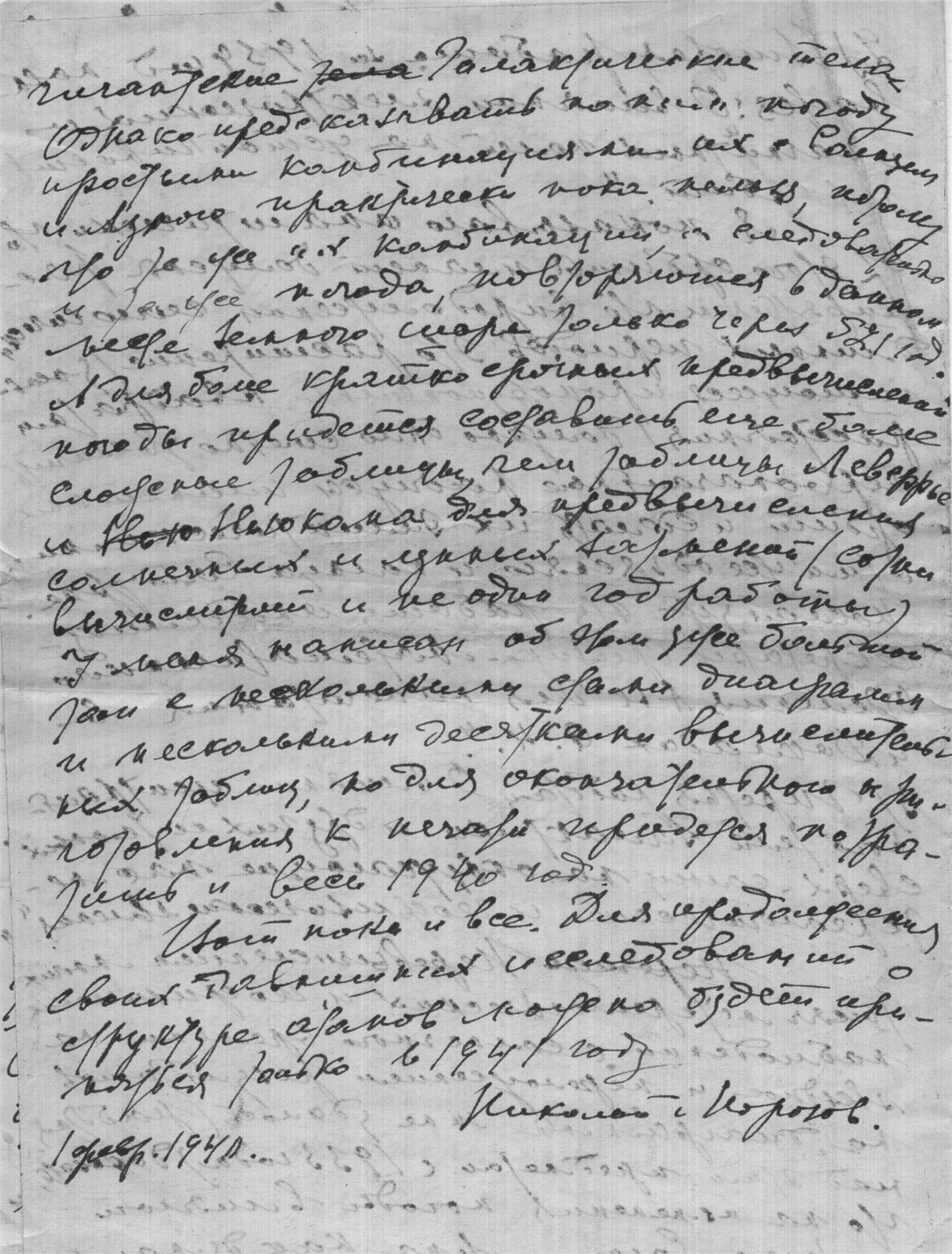 гигантские тела Галактические тела
Однако предсказывать по ним погоду
простыми комбинациями их с Солнцем
и Луною практически пока нельзя, потому
что те же их комбинации, а следовательно
и та же погода, повторяются в данном
месте земного шара только через 521 год.
А для более краткосрочных предвычислений
погоды придется составить еще более
сложные таблицы, чем таблицы Леверрье
и Нью Ньюкома для предвычисления
солнечных и лунных затмений (сотни
вычислителей и не один год работы)
У меня написан об этом уже большой
том с несколькими стами диаграмм
и несколькими десятками вычислитель
ных таблиц, но для окончательного при-
готовления к печати придется потра-
тить и весь 1940 год.
Вот пока и все. Для продолжения
своих давнишних исследований о
структуре атомов можно будет при-
няться только в 1941 году
Николай Морозов.
1 февр. 1940.